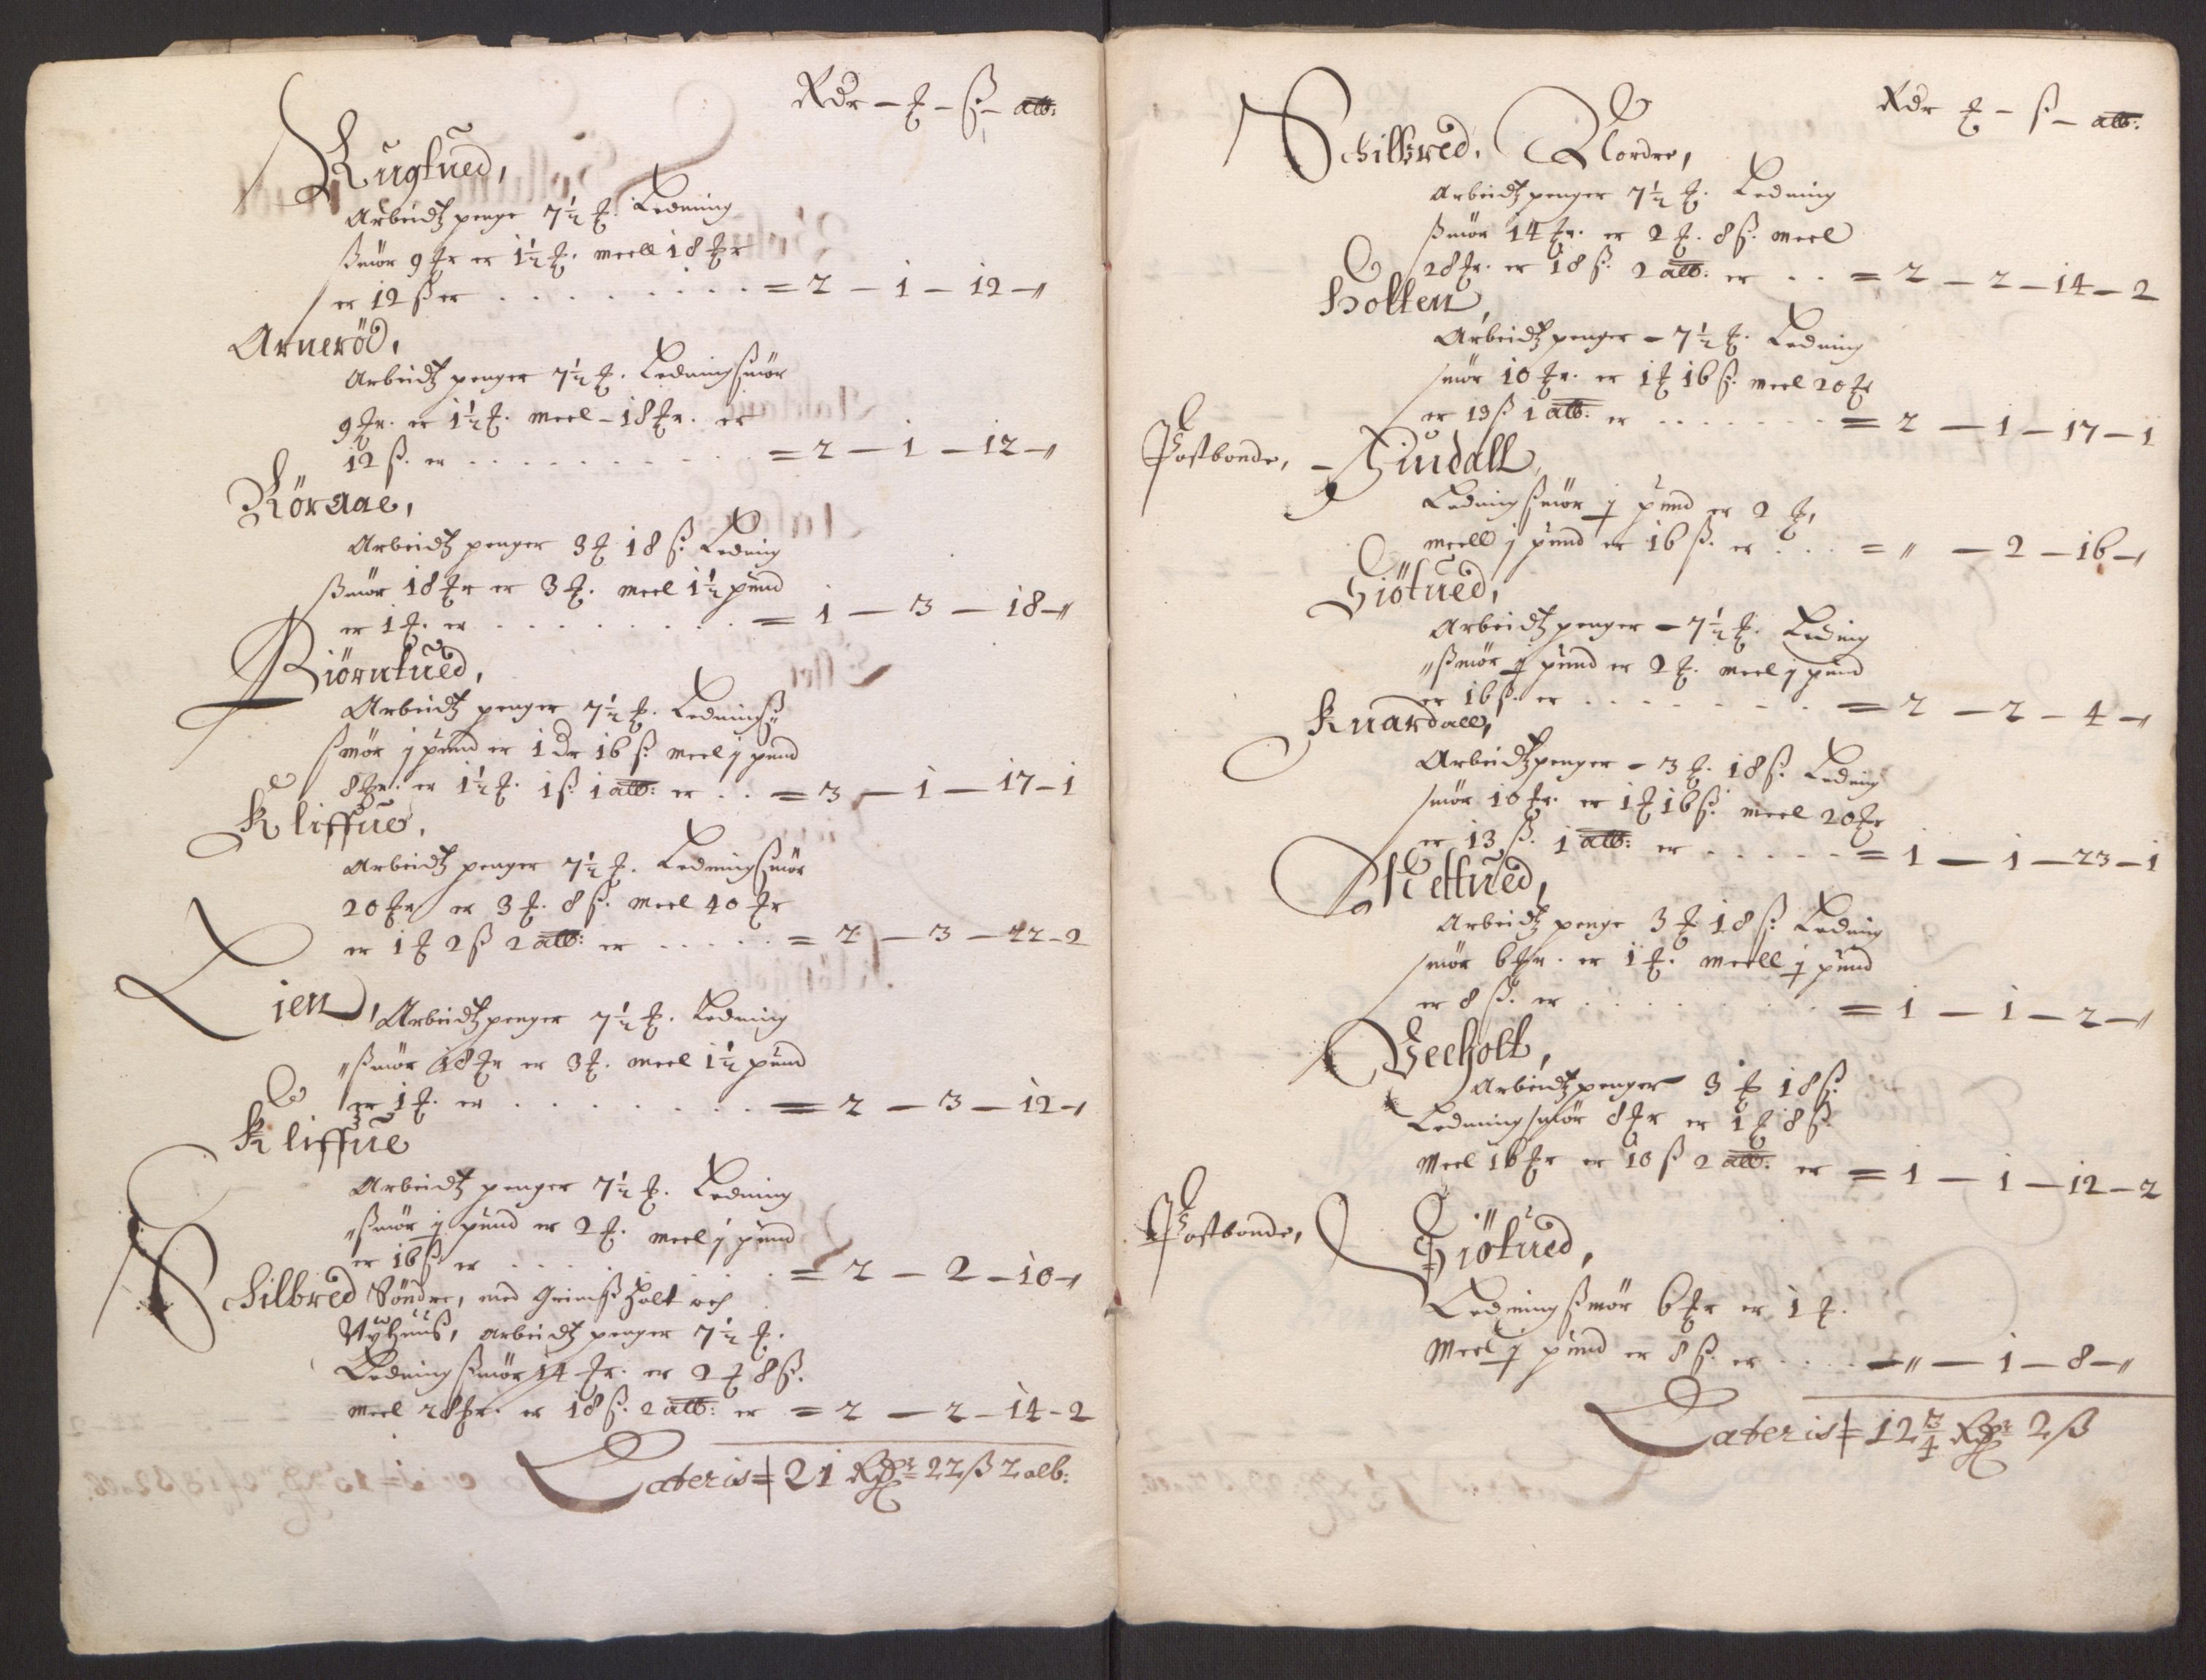 Rdr — ₰ — ß — alb:
Rugtued,
Arbeidtz penge 7½ ₰. Ledning
ßmör 9 ₰r er 1½ ₰. meell 18 ₰r
er 12 ß er . . . . . . . . . = 2 — 1 — 12 — „
Arneröd,
Arbeidtz penger 7½ ₰. Ledningsmör
9 ₰r. er 1½ ₰. meel — 18 ₰r. er
12 ß. er . . . . . . . . . = 2 — 1 — 12 — „
Röraae,
Arbeidtz penger 3 ₰ 18 ß. Ledning
ßmör 18 ₰r er 3 ₰. meel 1½ pund
er 1 ₰. er . . . . . . . . . = 1 — 3 — 18 — „
Biörntued,
Arbeidtz penger 7½ ₰. Lednings
smör j pund er 1 Dr 16 ß. meel j pund
8 ₰r. er 1½ ₰. 1 ß 1 alb: er . . = 3 — 1 — 17 — 1
Kliffue,
Arbeidtz penger 7½ ₰. Ledningsmör
20 ₰r er 3 ₰. 8 ß. meel 40 ₰r
er 1 ₰ 2 ß 2 alb: er . . . . . = 2 — 3 — 22 — 2
Lien, Arbeidtz penger 7½ ₰. Ledning
„ßmör 18 ₰r er 3 ₰. meel 1½ pund
er 1 ₰. er . . . . . . . . = 2 — 3 — 12 — „
Kliffue
Arbeidtz penger 7½ ₰. Ledning
„ßmör j pund er 2 ₰. meel j pund
er 16 ß er . . . . . . . . = 2 — 2 — 10 — „
Schilbred Söndre, med Grimßholt och
Nÿhuuß, arbeidtz penger 7½ ₰.
Ledningsmör 14 ₰r. er 2 ₰ 8 ß.
meel 28 ₰r. er 18 ß. 2 alb: er = 2 — 2 — 14 — 2
Lateris = 21 Rdr 22 ß 2 alb:
Rdr ₰ — ß — alb:
Schilbred, Nordre,
Arbeidtz penger 7½ ₰. Ledning
ßmör 14 ₰r. er 2 ₰. 8 ß. meel
28 ₰r. er 18 ß. 2 alb: er . . = 2 — 2 — 14 — 2
Holten,
Arbeidtz penger — 7½ ₰. Ledning
smör 10 ₰r. er 1 ₰ 16 ß. meel 20 ₰r
er 13 ß 1 alb: er . . . . . . . = 2 — 1 — 17 — 1
Postbonde, — Sundall,
Ledningsmör j pund er 2 ₰,
meell j pund er 16 ß. er . . . = „ — 2 — 16 — „
Giötued,
Arbeidtz penger — 7½ ₰. Leding
„ßmör j pund er 2 ₰. meel j pund
er 16 ß. er . . . . . . . . = 2 — 2 — 4 — „
Knardall,
Arbeidtz penger — 3 ₰. 18 ß. Ledning
smör 10 ₰r. er 1 ₰ 16 ß. meel 20 ₰r
er 13 ß. 1 alb: er . . . . . = 1 — 1 — 23 — 1
Skettued,
Arbeidtz penge 3 ₰ 18 ß. Ledning
smör 6 ₰r. er 1 ₰. meell j pund
er 8 ß. er . . . . . . . . = 1 — 1 — 2 — „
Veeholt,
Arbeidtz penger 3 ₰ 18 ß.
Ledningsmör 8 ₰r er 1 ₰ 8 ß.
Meel 16 ₰r er 10 ß 2 alb: er = 1 — 1 — 12 — 2
Postbonde, Giötued,
Ledningsmör 6 ₰r er 1 ₰.
Meel j pund er 8 ß. er . . . . — „ — 1 — 8 — „
Lateris = 12¾ Rdr 2 ß